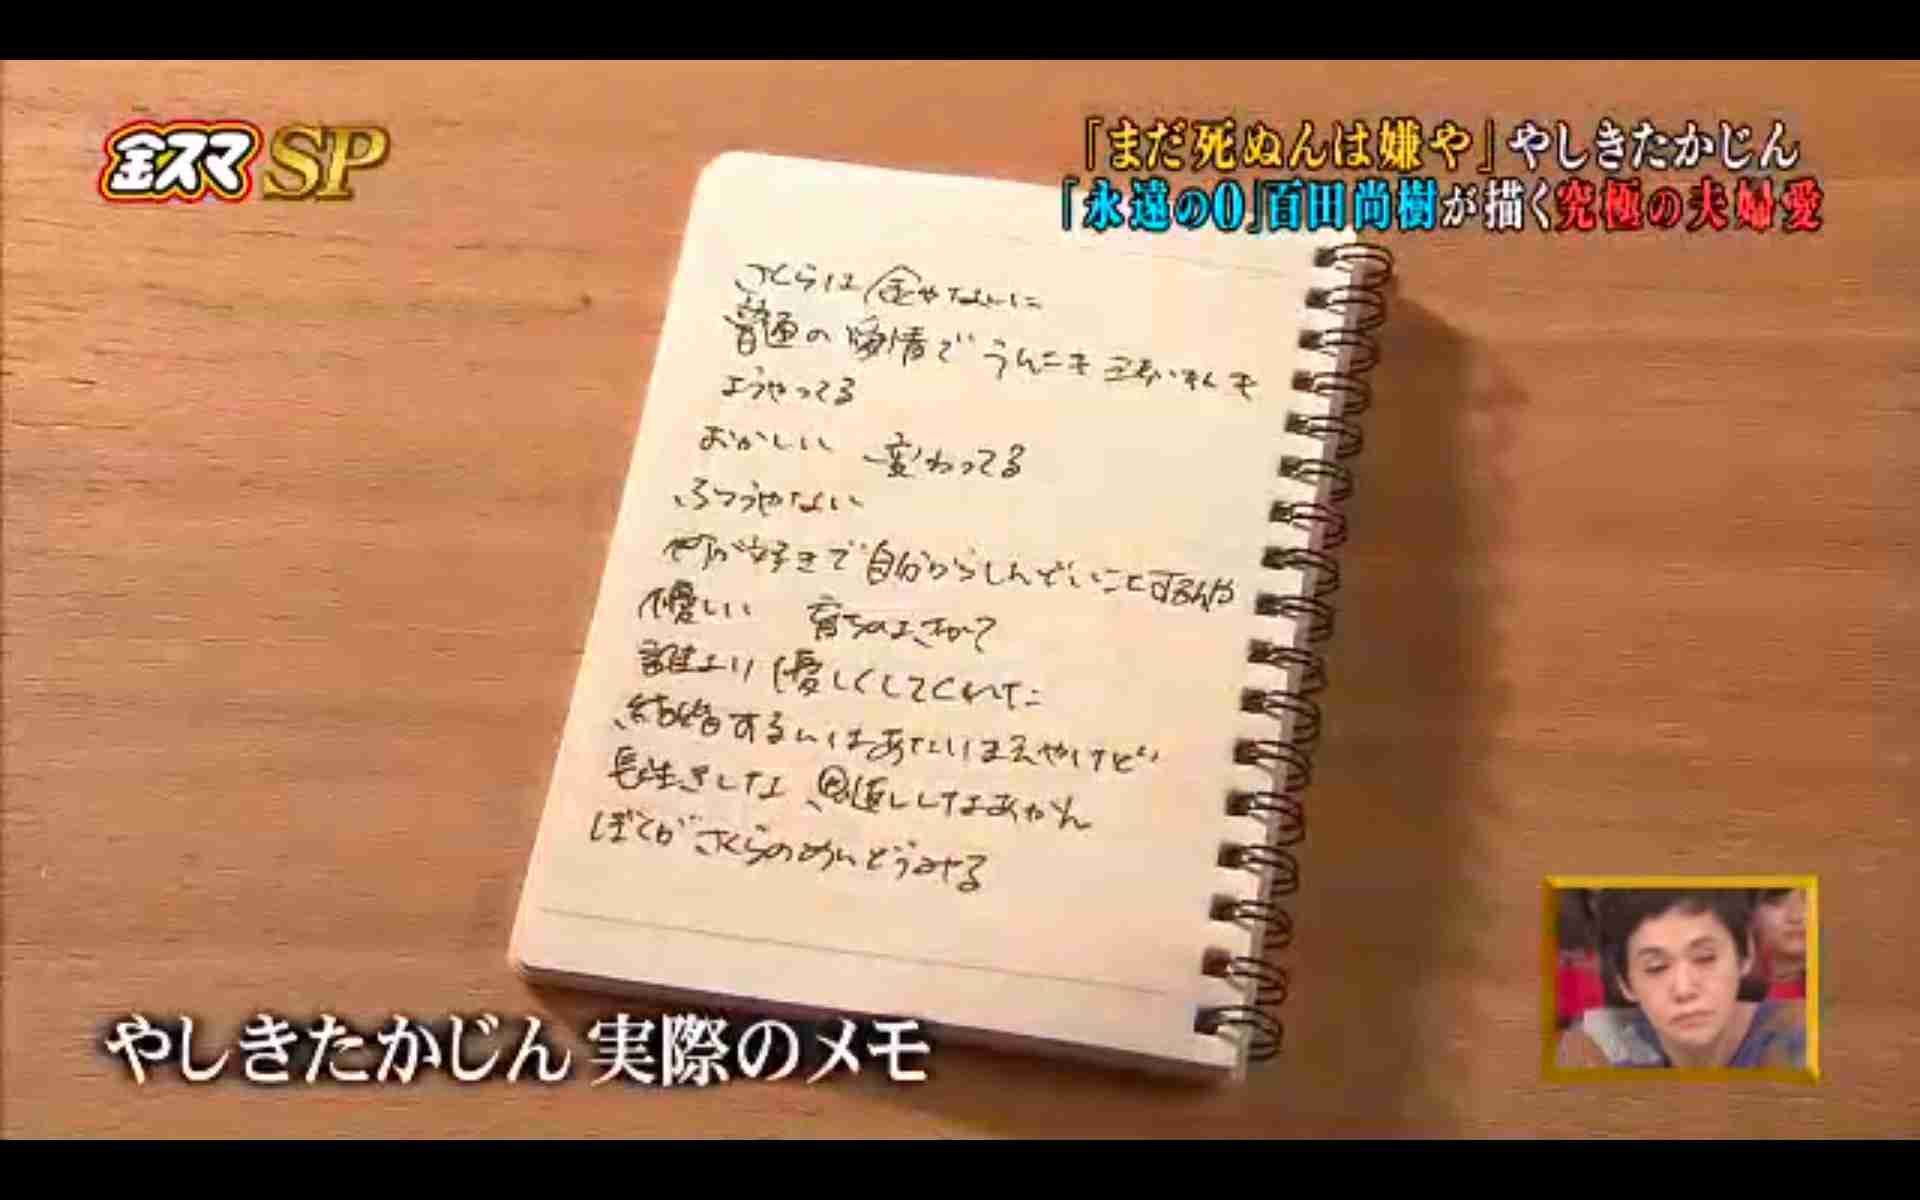 金スマSP
「まだ死ぬんは嫌や」やしきたかじん
「永遠の0」百田尚樹が描く究極の夫婦愛
さくらは金やないに
普通の愛情で うんこも
ようやってる
おかしい 変わってる
ふつうやない
何が好きで自分からしんどいことするんや
優しい 育ちのよさかて
誰より優しくしてくれた
結婚するんはあたりまえやけど
長生きしな 恩返ししなあかん
ぼくが さくらのめんどうみやる
やしきたかじん 実際のメモ